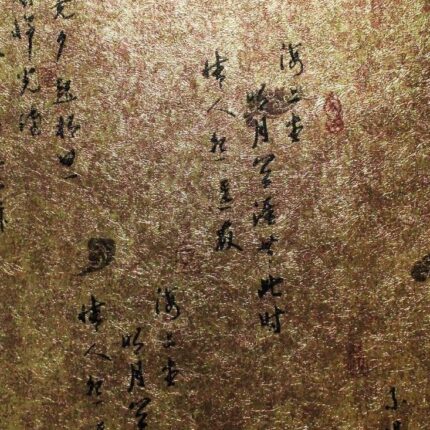 海上生
明月天涯共此时
情人怨遥夜
海上生
明月天
情人怨
夕起相思
怜光满